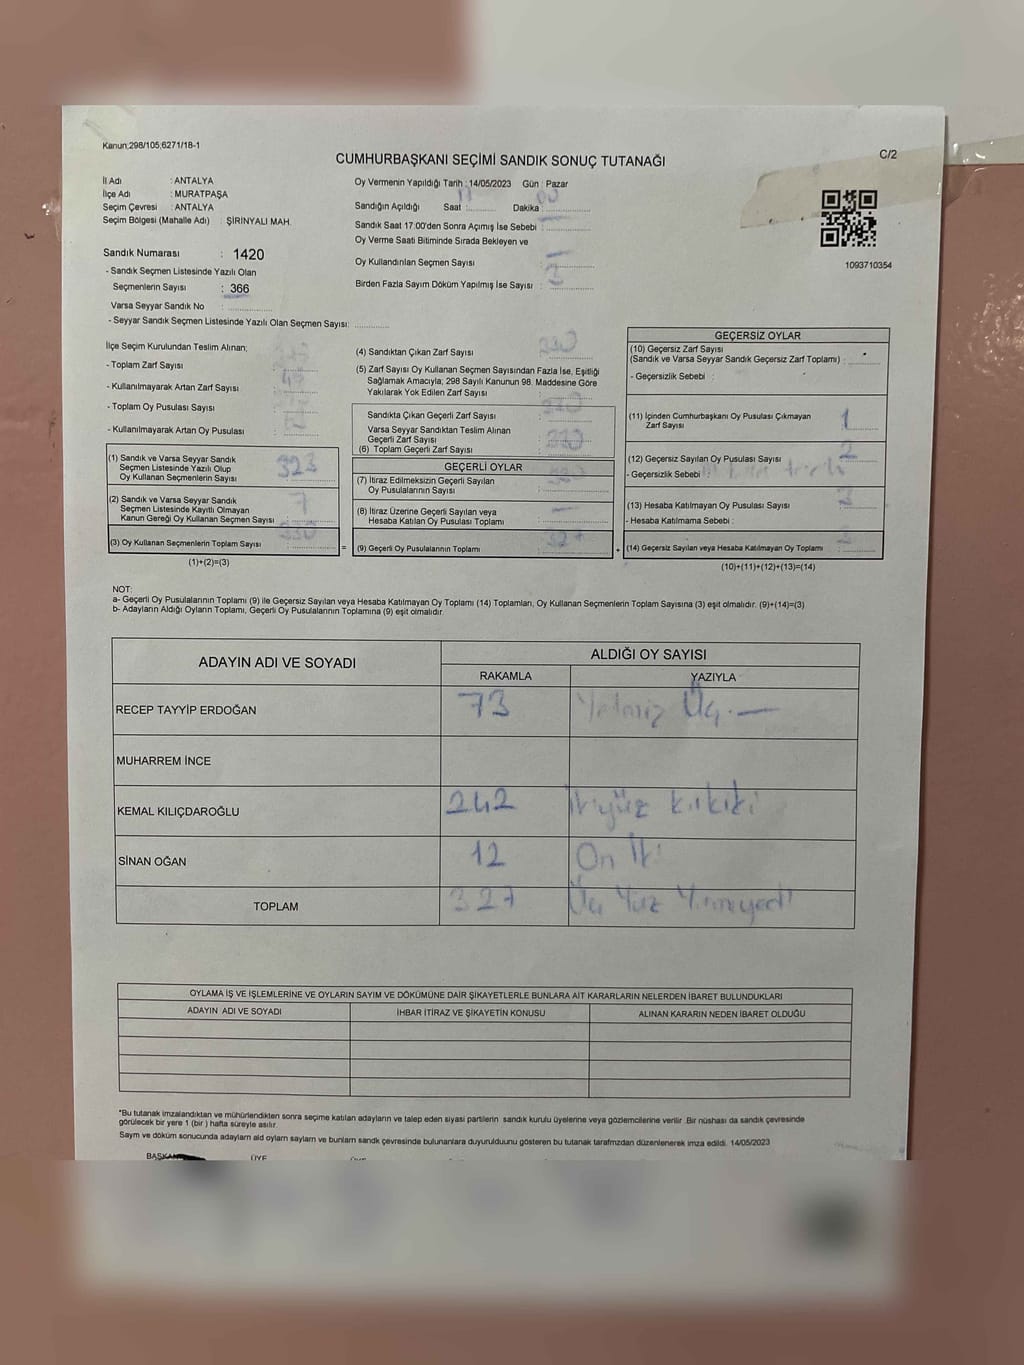 Kanun;298/105;6271/18-1
C/2
CUMHURBAŞKANI SEÇİMİ SANDIK SONUÇ TUTANAĞI
İl Adı : ANTALYA
İlçe Adı : MURATPAŞA
Seçim Çevresi : ANTALYA
Seçim Bölgesi (Mahalle Adı) : ŞİRİNYALI MAH.
Sandık Numarası : 1420
- Sandık Seçmen Listesinde Yazılı Olan
Seçmenlerin Sayısı : 366
Varsa Seyyar Sandık No :
- Seyyar Sandık Seçmen Listesinde Yazılı Olan Seçmen Sayısı:
Oy Vermenin Yapıldığı Tarih : 14/05/2023 Gün : Pazar
Sandığın Açıldığı Saat : Dakika : 00
Sandık Saat 17:00'den Sonra Açımış İse Sebebi :
Oy Verme Saati Bitiminde Sırada Bekleyen ve
Oy Kullandırılan Seçmen Sayısı :
Birden Fazla Sayım Döküm Yapılmış İse Sayısı :
1093710354
İlçe Seçim Kurulundan Teslim Alınan;
- Toplam Zarf Sayısı :
- Kullanılmayarak Artan Zarf Sayısı :
- Toplam Oy Pusulası Sayısı :
- Kullanılmayarak Artan Oy Pusulası :
(1) Sandık ve Varsa Seyyar Sandık
Seçmen Listesinde Yazılı Olup
Oy Kullanan Seçmenlerin Sayısı : 323
(2) Sandık ve Varsa Seyyar Sandık
Seçmen Listesinde Kayıtlı Olmayan
Kanun Gereği Oy Kullanan Seçmen Sayısı : 7
(3) Oy Kullanan Seçmenlerin Toplam Sayısı : 330
(1)+(2)=(3)
(4) Sandıktan Çıkan Zarf Sayısı : 330
(5) Zarf Sayısı Oy Kullanan Seçmen Sayısından Fazla İse, Eşitliği
Sağlamak Amacıyla; 298 Sayılı Kanunun 98. Maddesine Göre
Yakılarak Yok Edilen Zarf Sayısı :
Sandıkta Çıkan Geçerli Zarf Sayısı :
Varsa Seyyar Sandıktan Teslim Alınan
Geçerli Zarf Sayısı :
(6) Toplam Geçerli Zarf Sayısı :
GEÇERLİ OYLAR
(7) İtiraz Edilmeksizin Geçerli Sayılan
Oy Pusulalarının Sayısı :
(8) İtiraz Üzerine Geçerli Sayılan veya
Hesaba Katılan Oy Pusulası Toplamı :
= (9) Geçerli Oy Pusulalarının Toplamı : 327
GEÇERSİZ OYLAR
(10) Geçersiz Zarf Sayısı
(Sandık ve Varsa Seyyar Sandık Geçersiz Zarf Toplamı) :
- Geçersizlik Sebebi :
(11) İçinden Cumhurbaşkanı Oy Pusulası Çıkmayan
Zarf Sayısı : 1
(12) Geçersiz Sayılan Oy Pusulası Sayısı : 2
- Geçersizlik Sebebi :
(13) Hesaba Katılmayan Oy Pusulası Sayısı :
- Hesaba Katılmama Sebebi :
+ (14) Geçersiz Sayılan veya Hesaba Katılmayan Oy Toplamı :
(10)+(11)+(12)+(13)=(14)
NOT:
a- Geçerli Oy Pusulalarının Toplamı (9) ile Geçersiz Sayılan veya Hesaba Katılmayan Oy Toplamı (14) Toplamları, Oy Kullanan Seçmenlerin Toplam Sayısına (3) eşit olmalıdır. (9)+(14)=(3)
b- Adayların Aldığı Oyların Toplamı, Geçerli Oy Pusulalarının Toplamına (9) eşit olmalıdır.
ADAYIN ADI VE SOYADI ALDIĞI OY SAYISI
RAKAMLA YAZIYLA
RECEP TAYYİP ERDOĞAN 73 Yetmiş Üç
MUHARREM İNCE
KEMAL KILIÇDAROĞLU 242 İkiyüz kırkiki
SİNAN OĞAN 12 On İki
TOPLAM 327 Üç Yüz Yirmiyedi
OYLAMA İŞ VE İŞLEMLERİNE VE OYLARIN SAYIM VE DÖKÜMÜNE DAİR ŞİKAYETLERLE BUNLARA AİT KARARLARIN NELERDEN İBARET BULUNDUKLARI
ADAYIN ADI VE SOYADI İHBAR İTİRAZ VE ŞİKAYETİN KONUSU ALINAN KARARIN NEDEN İBARET OLDUĞU
*Bu tutanak imzalandıktan ve mühürlendikten sonra seçime katılan adayların ve talep eden siyasi partilerin sandık kurulu üyelerine veya gözlemcilerine verilir. Bir nüshası da sandık çevresinde
görülecek bir yere 1 (bir) hafta süreyle asılır.
Sayım ve döküm sonucunda adayların ald oyların sayların ve bunların sandk çevresinde bulunanlara duyurulduunu gösteren bu tutanak tarafmzdan düzenlenerek imza edildi. 14/05/2023
BAŞKAN ÜYE